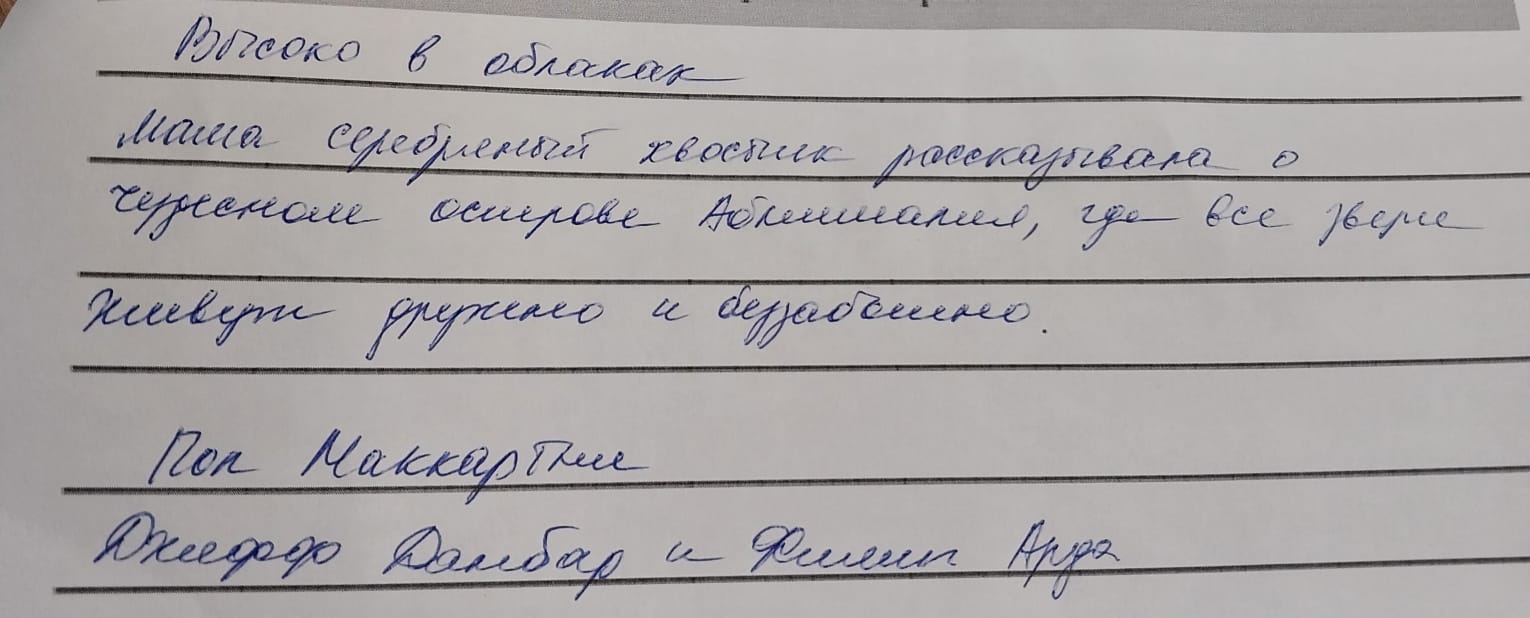 Высоко в облаках
Мама серебреный хвостик рассказывала о
чудесном острове Аблимация, где все звери
живут дружно и беззаботно.
Пол Маккартни
Джефф Данбар и Филип Арда